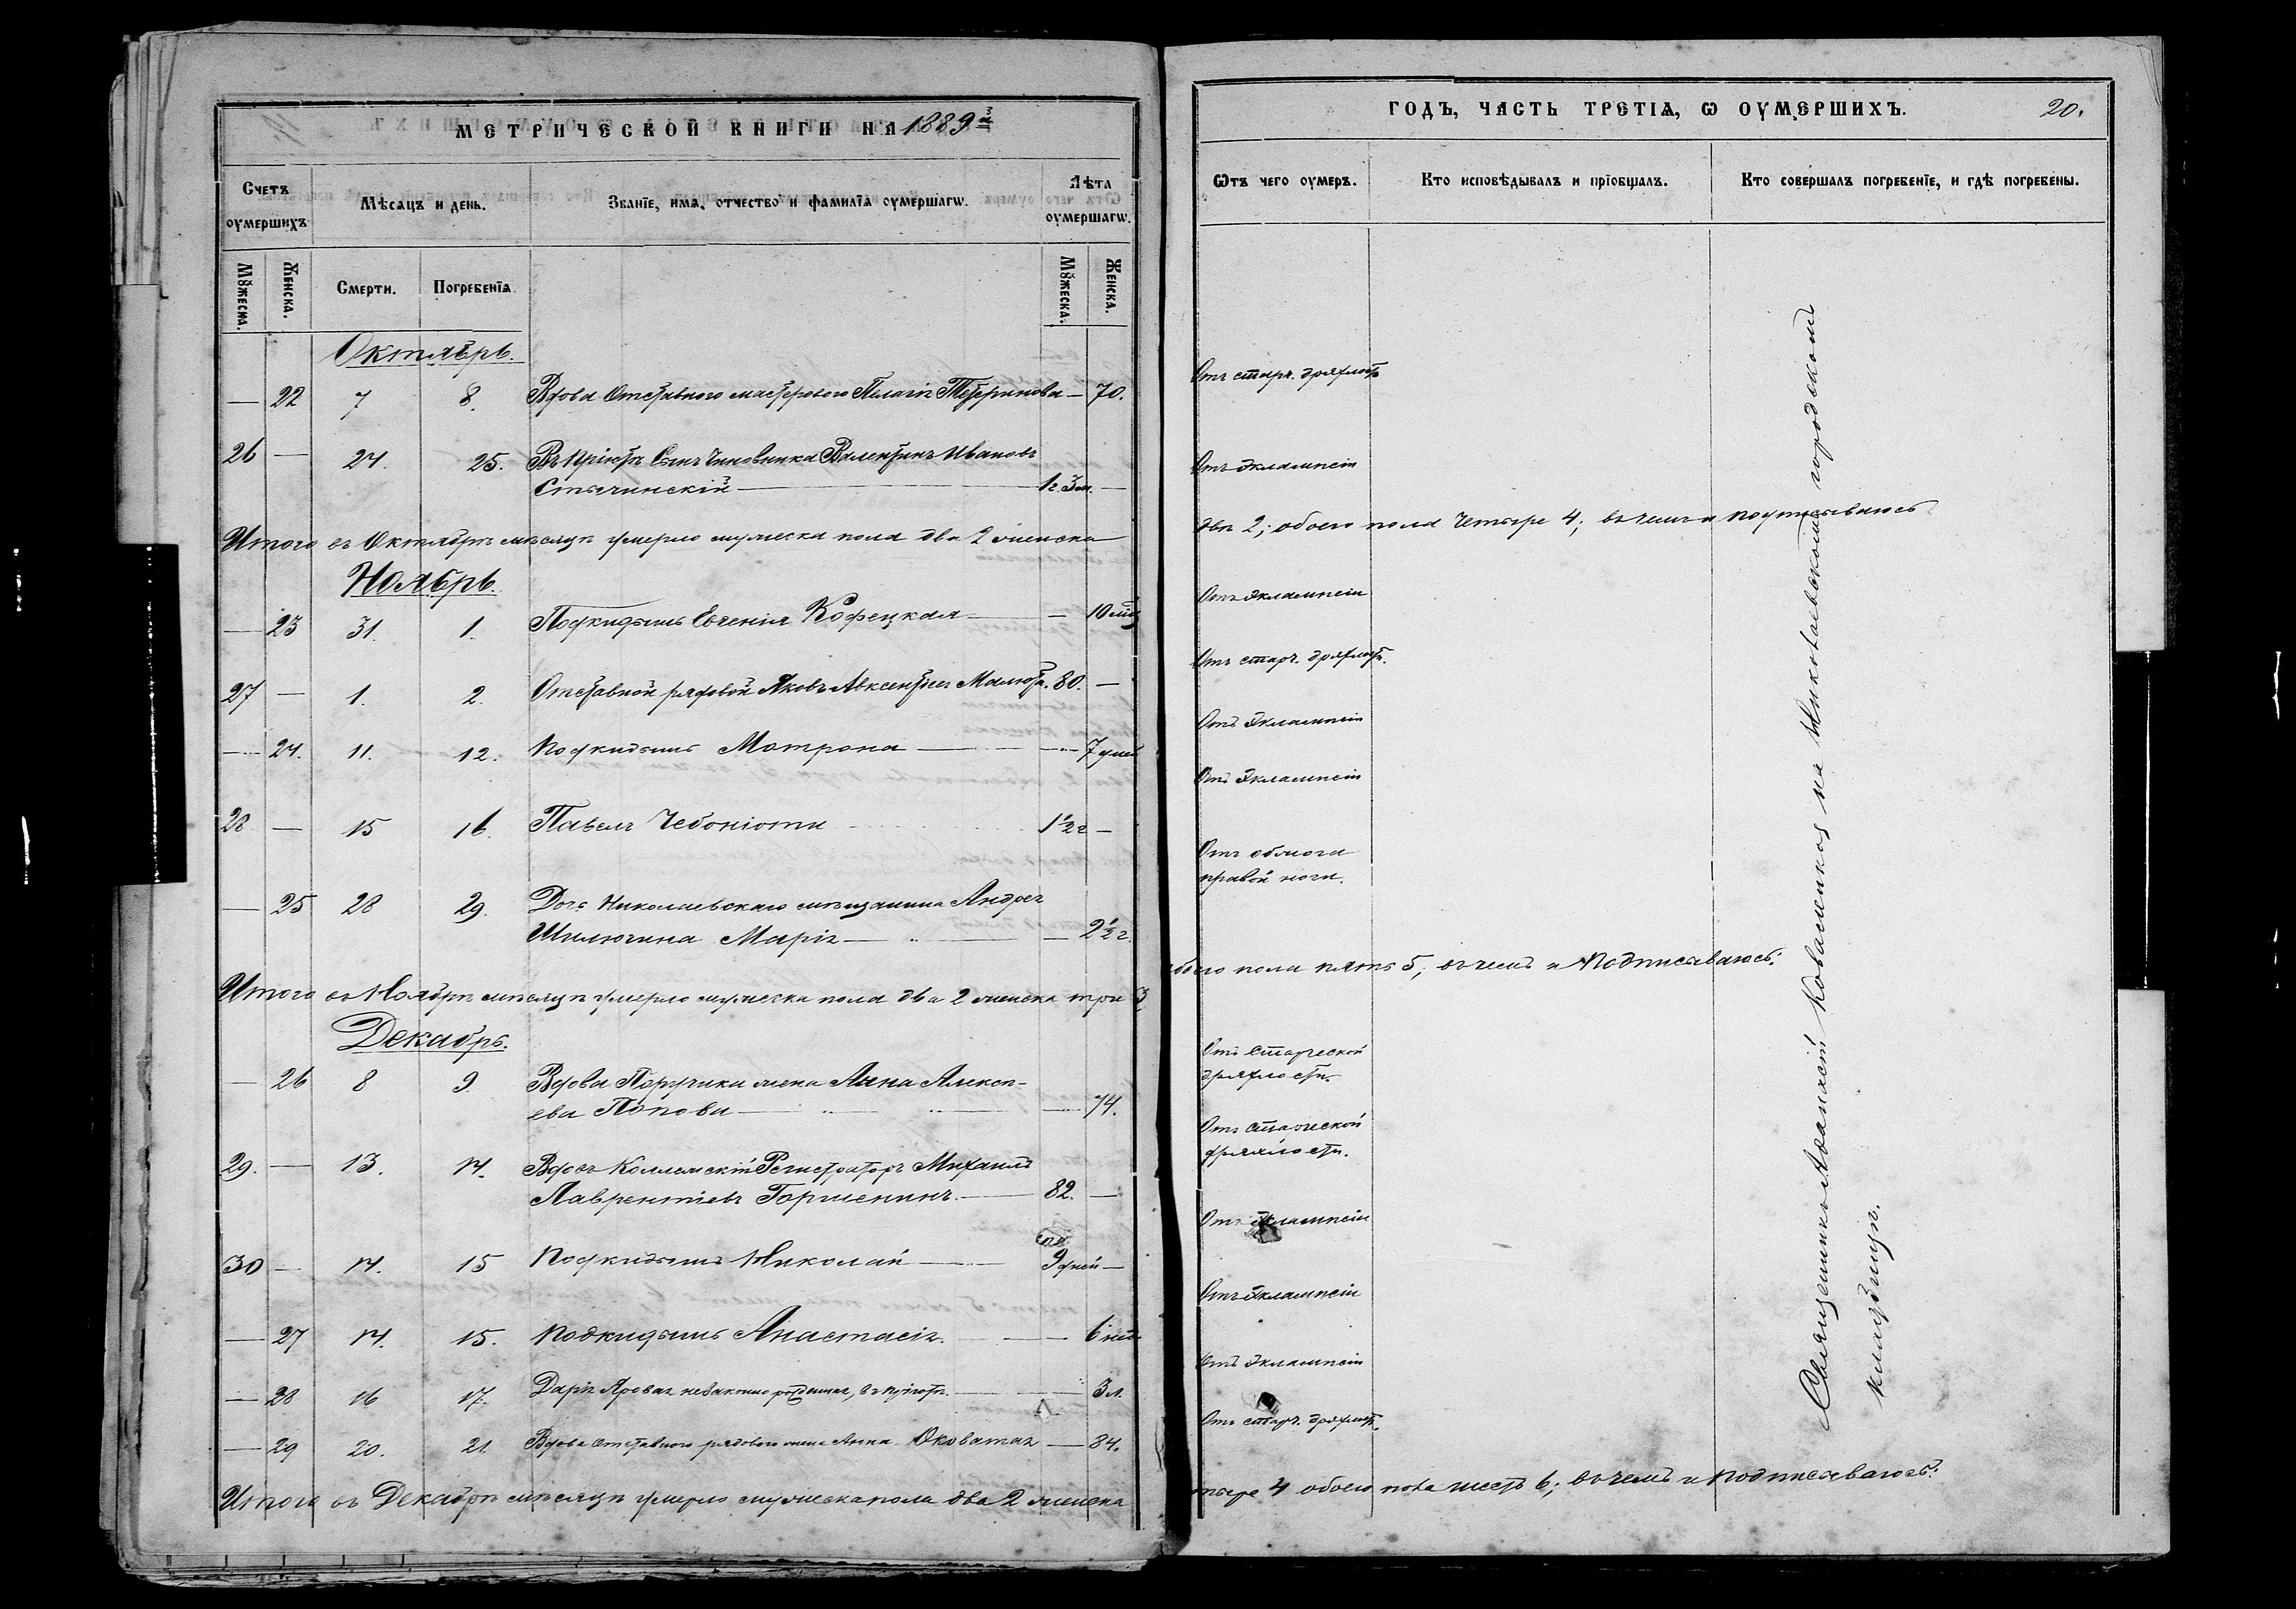 МЕТРИЧЕСКОЙ КНИГИ НА 1889й
Счетъ оумершихъ
Мѣсяцъ и день.
Званїе, имя, отчество и фамилїя оумершагѡ.
Лѣта оумершагѡ.
Мꙋжеска.
Женска.
Смерти.
Погребенїя.
Мꙋжеска.
Женска.
Октябрь.
— 22 7 8. Вдова Отставного мастерового Пелагія — 70.
26 — 24. 25. Въ пріютѣ Сынъ Чиновника Валентинъ Ивановъ
1г. 3м. —
Итого въ Октябрѣ мѣсяцѣ умерло мужеска пола два 2 женска
Ноябрь.
— 23 31. 1. Подкидышъ Евгенія Кофецкая — 10 мѣц
27 — 1. 2. Отставной рядовой Яковъ Авксентіевъ 80. —
— 24. 11. 12. Подкидышъ Матрона — 7 дней
28 — 15 16. Павелъ 1½ г —
— 25 28 29. Дочь Николаевскаго мѣщанина Андрея
Шилюгина Марія — 2½ г.
Итого въ Ноябрѣ мѣсяцѣ умерло мужеска пола два 2 женска три 3
Декабрь.
— 26 8 9. Вдова Поручика жена Анна Алексѣ-
ева Попова — 74.
29. — 13. 14. Вдовъ Коллежскій Регистраторъ Михаилъ
Лаврентіевъ Горшенинъ. 82. —
30 — 14. 15 Подкидышъ Николай 9 дней —
— 27 14. 15. Подкидышъ Анастасія. — 6 нед
— 28 16 17. Дарія Яровая незаконно рожденная, въ пріютѣ. — 3 л.
— 29 20. 21. Вдова Отставного рядового жена Анна Оковатая — 84.
Итого въ Декабрѣ мѣсяцѣ умерло мужеска пола два 2 женска
ГОДЪ, ЧАСТЬ ТРЕТІЯ, Ѡ ОУМЕРШИХЪ. 20.
Ѿтъ чего оумеръ.
Кто исповѣдывалъ и прїобщалъ.
Кто совершалъ погребенїе, и гдѣ погребены.
Отъ старч. дряхлости
Отъ Эклампсіи
двѣ 2; обоего пола четыре 4; въ чемъ и подписываюсь
Отъ Эклампсіи
Отъ старч. дряхлост.
Отъ Эклампсіи
Отъ Эклампсіи
Отъ обжога
правой ноги.
обоего пола пять 5; въ чемъ и Подписываюсь:
Отъ Старческой
дряхлости.
Отъ Старческой
дряхлости.
Отъ Эклампсіи
Отъ Эклампсіи
Отъ Эклампсіи
Отъ старч. дряхлост.
тыре 4 обоего пола шесть 6; въ чемъ и подписываюсь:
Священникъ Аѳанасій Коваленко на Николаевскомъ городскомъ
кладбищѣ.